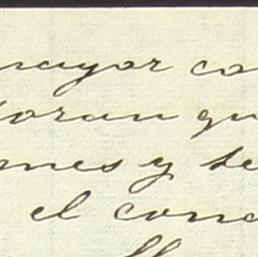 mayor co
oran qu
nes y se
el conc